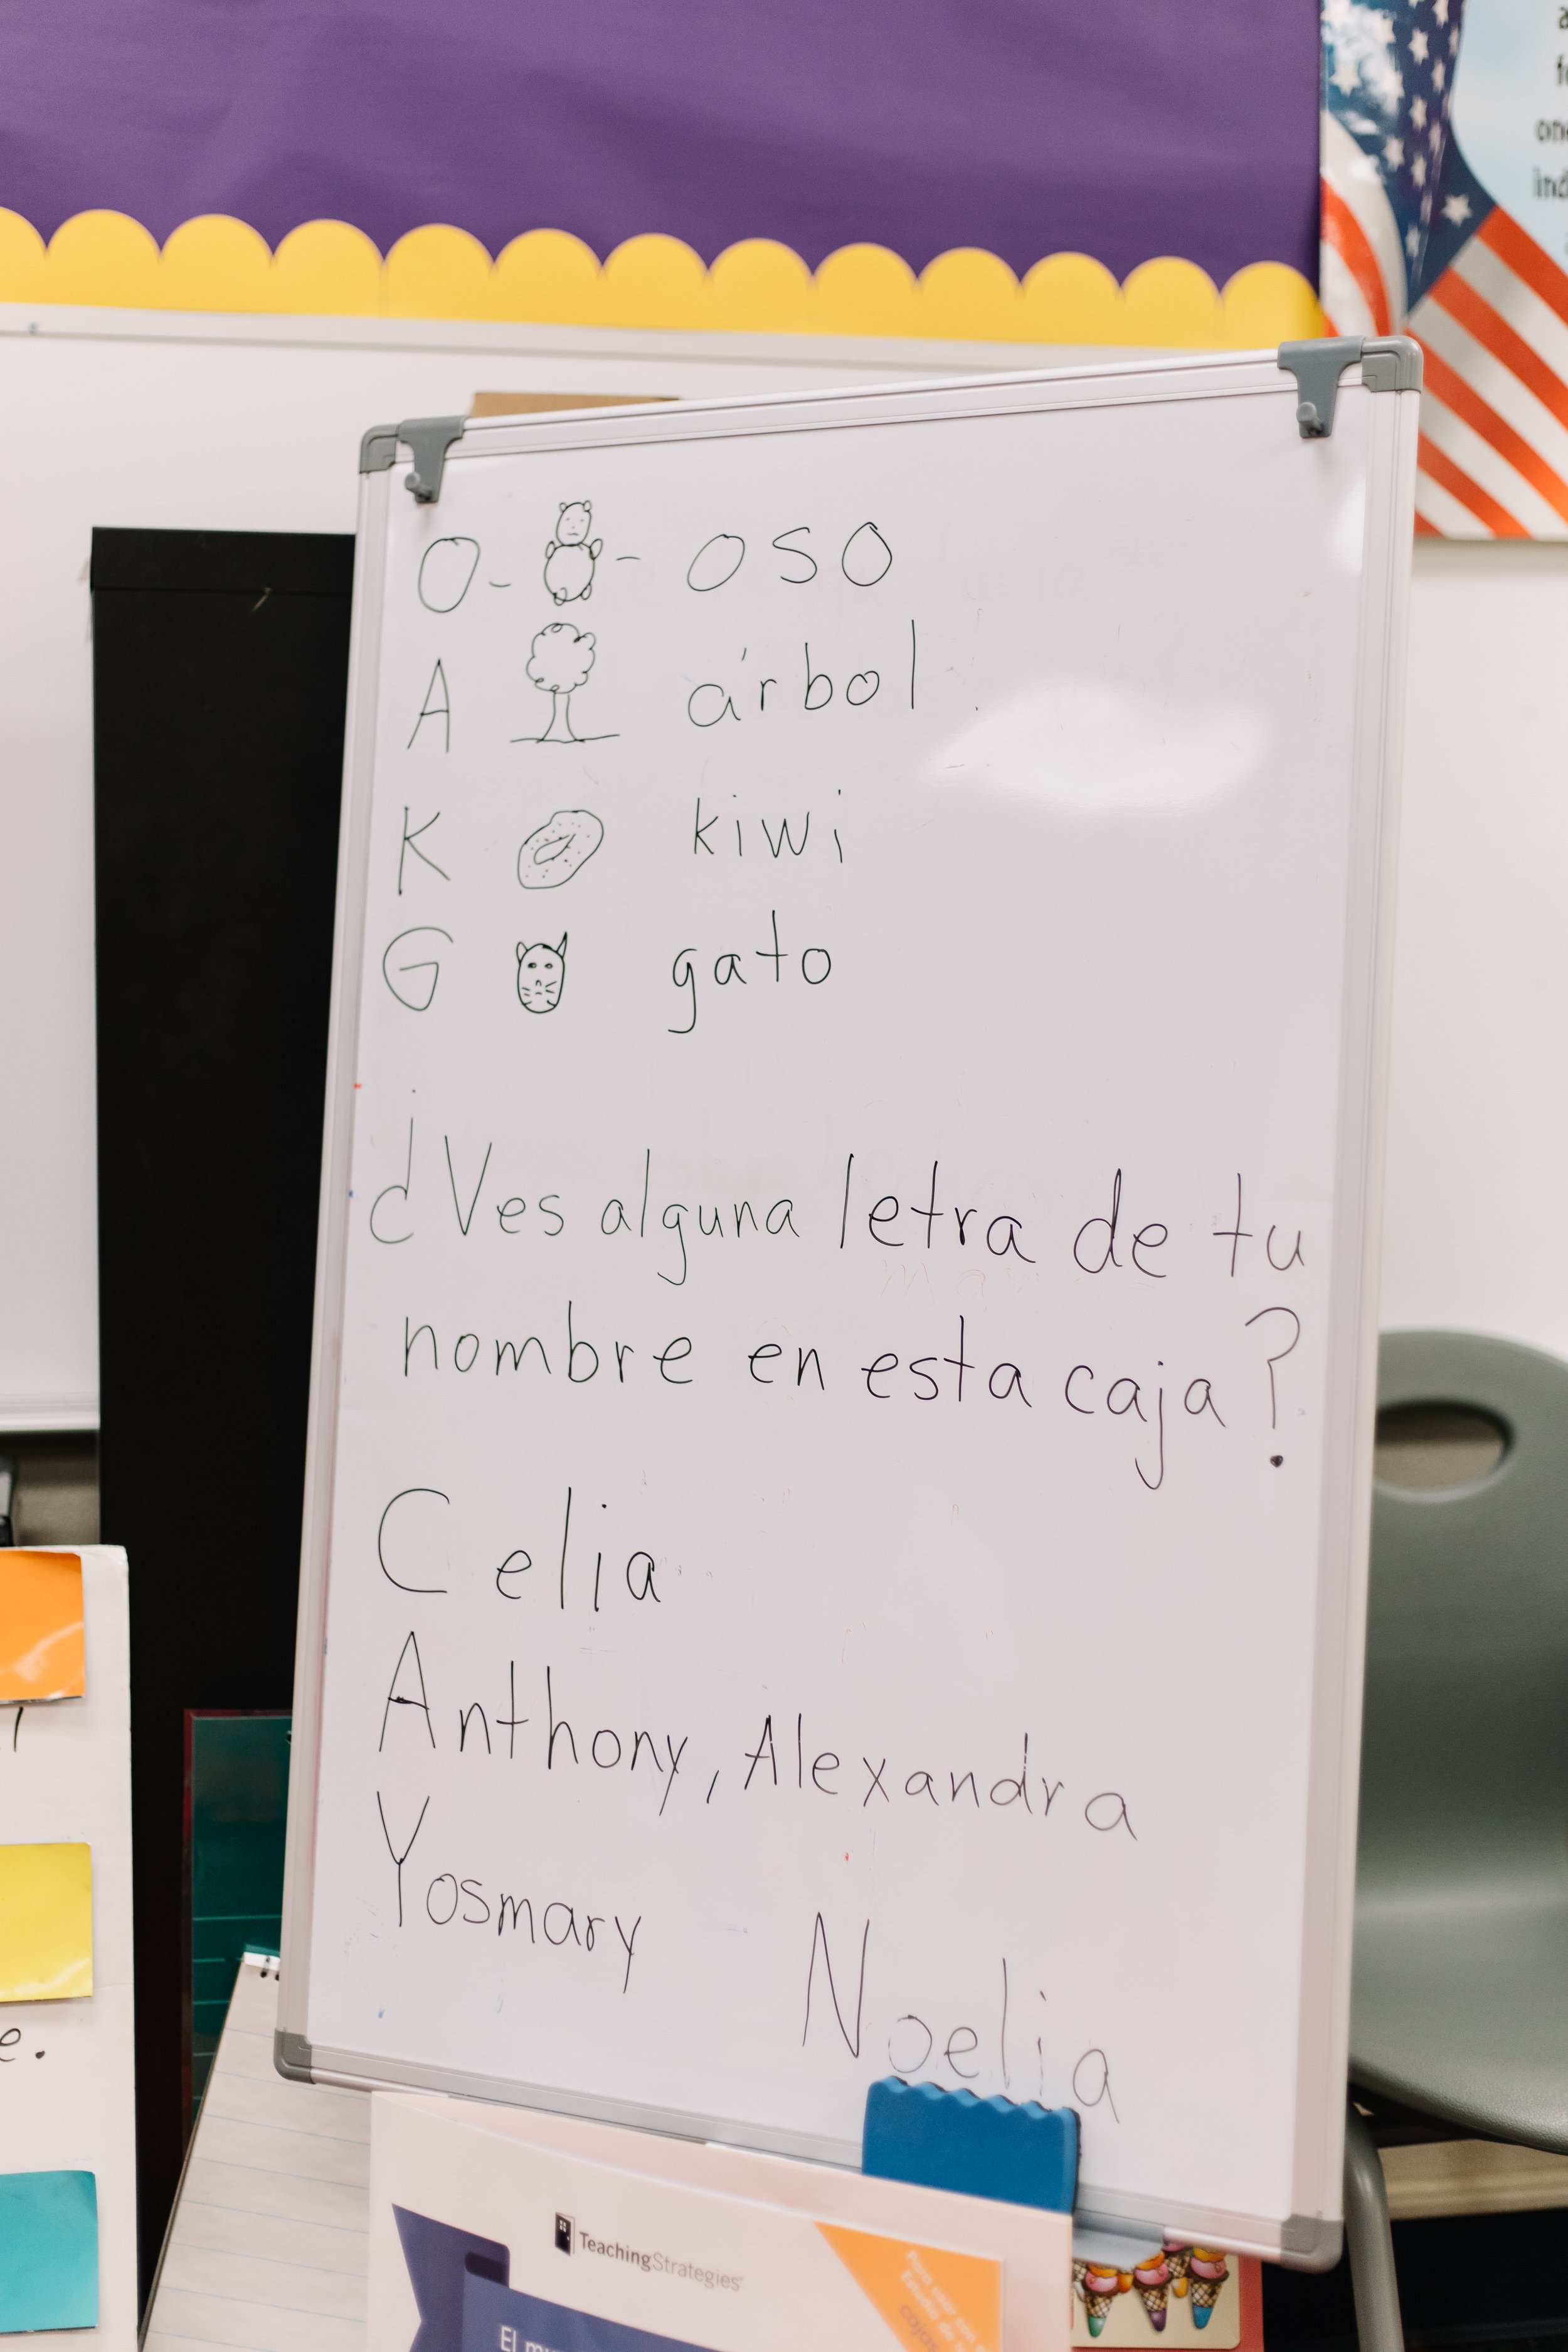 O - - oso
A árbol
K kiwi
G gato
¿Ves alguna letra de tu
nombre en esta caja?
Celia
Anthony, Alexandra
Yosmary
Noelia
TeachingStrategies
El